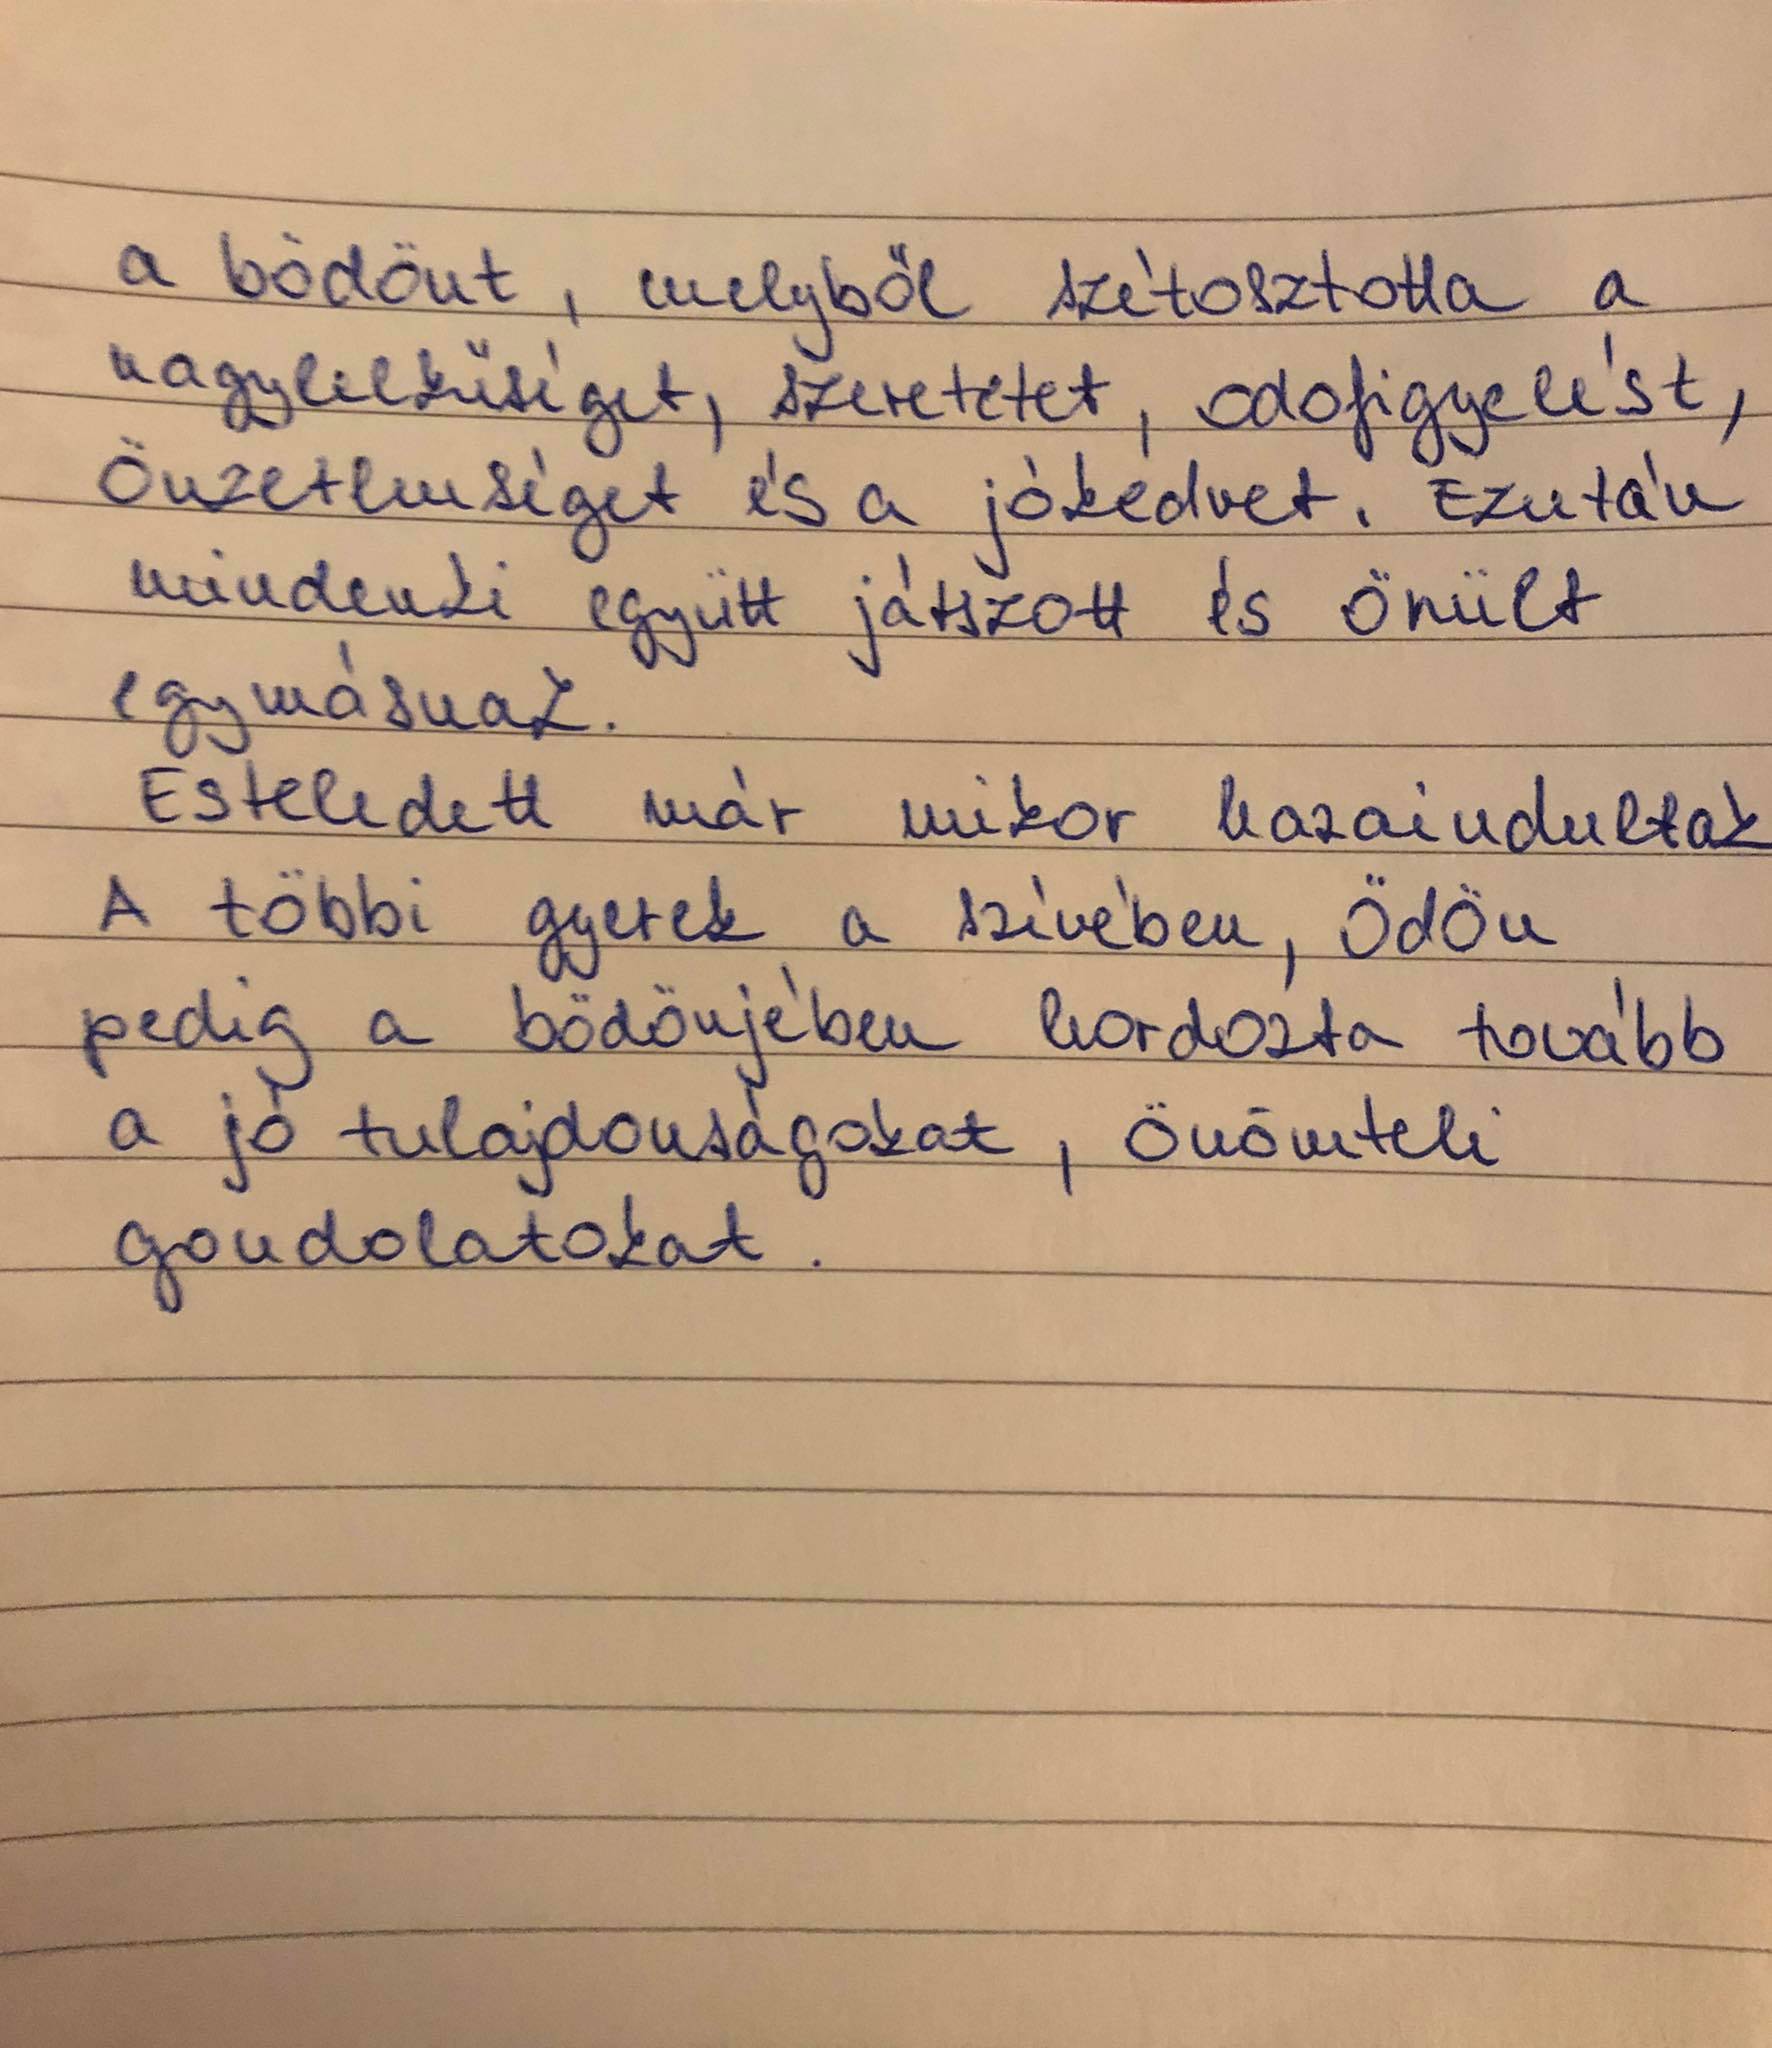 a bödönt, melyből szétosztotta a
nagylelkűséget, szeretetet, odafigyelést,
önzetlenséget és a jókedvet. Ezután
mindenki együtt játszott és örült
egymásnak.
Esteledett már mikor hazaindultak
A többi gyerek a szívében, Ödön
pedig a bödönjében hordozta tovább
a jó tulajdonságokat, örömteli
gondolatokat.